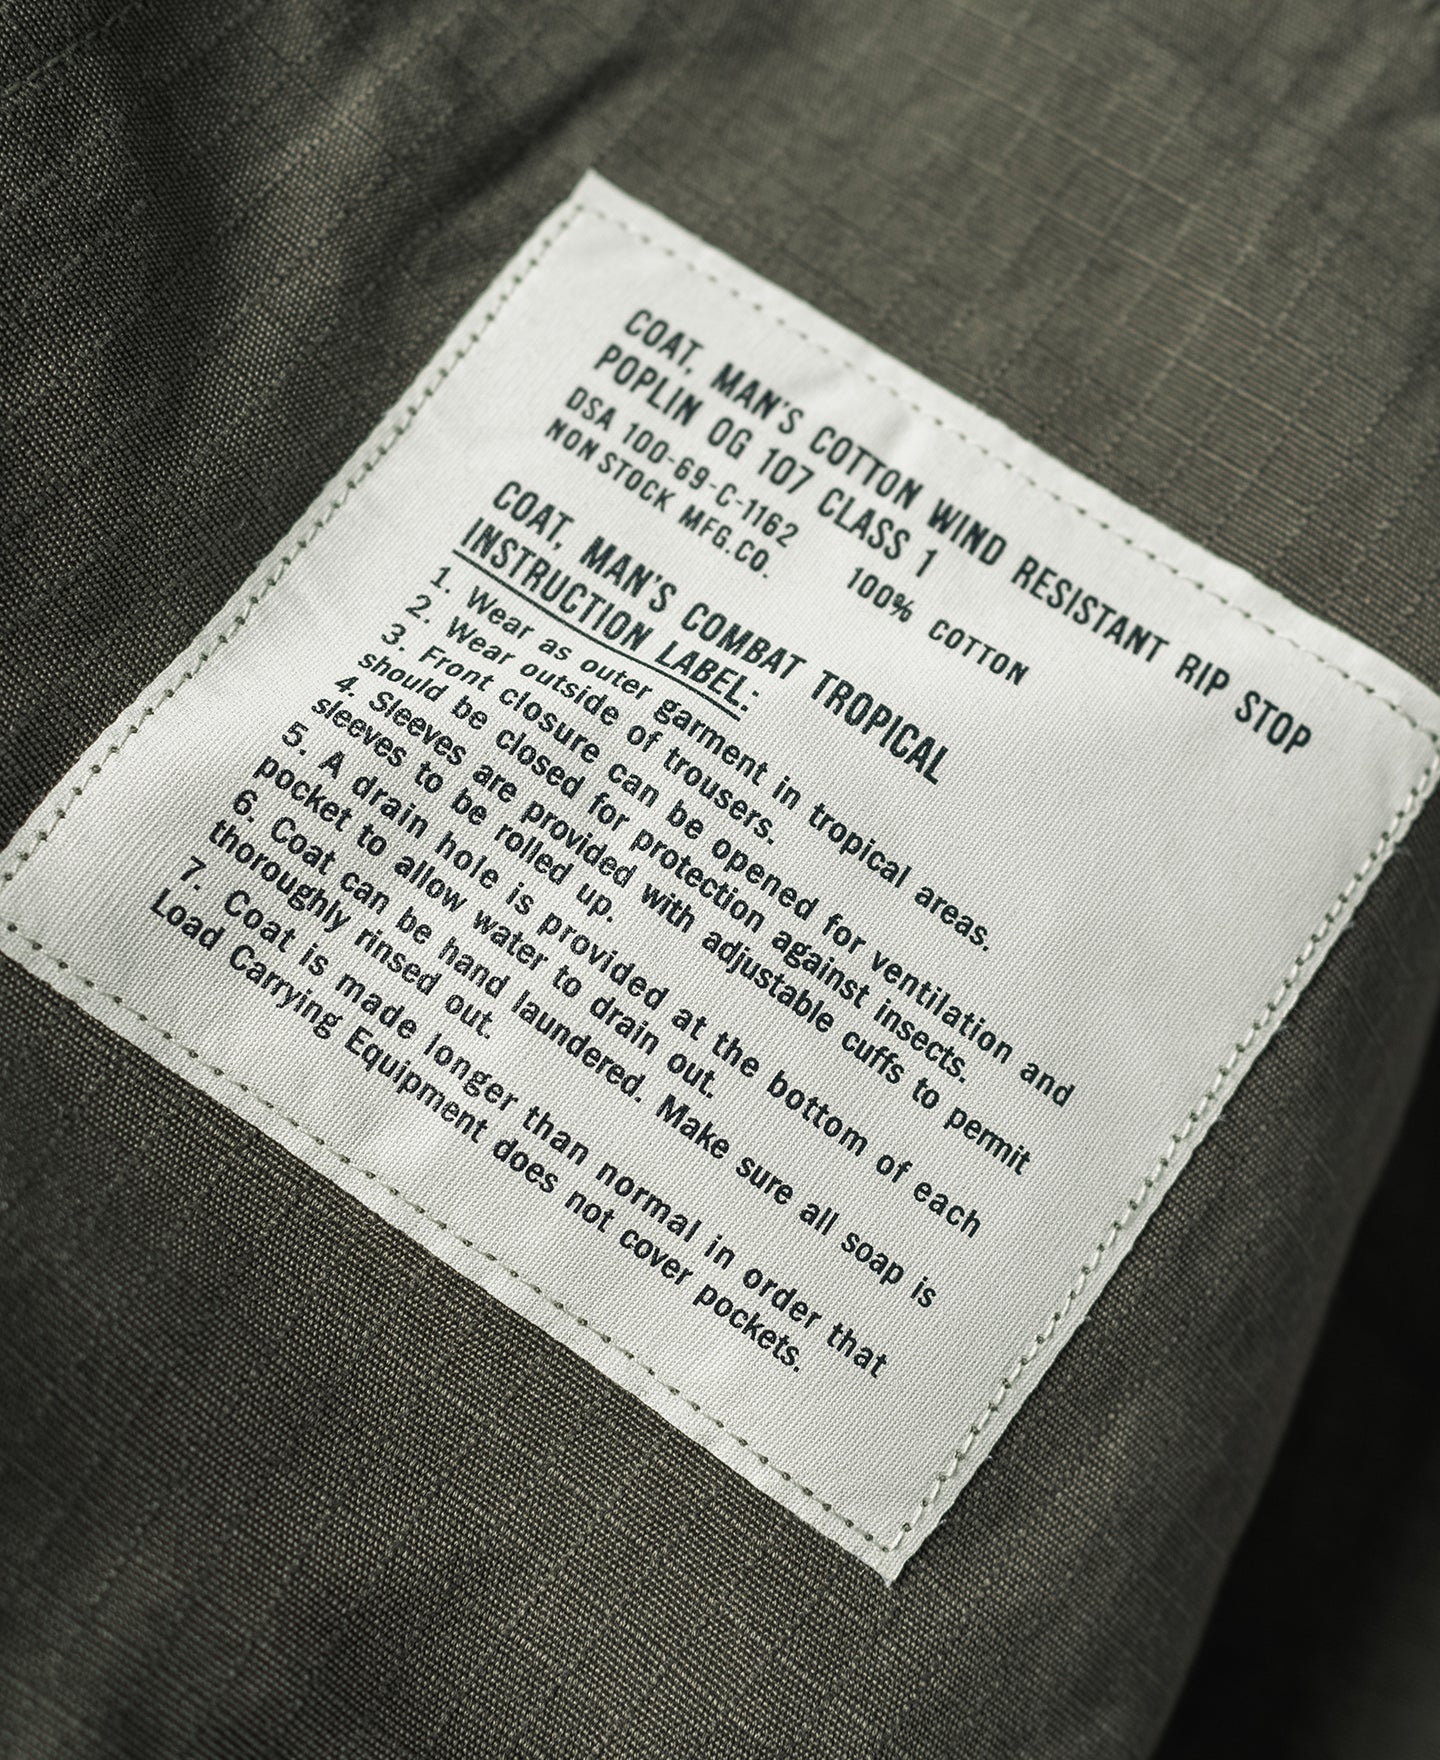 COAT, MAN'S COTTON WIND RESISTANT RIP STOP
POPLIN OG 107 CLASS 1
DSA 100-69-C-1162 100% COTTON
NON STOCK MFG.CO.
COAT, MAN'S COMBAT TROPICAL
INSTRUCTION LABEL:
1. Wear as outer garment in tropical areas.
2. Wear outside of trousers.
3. Front closure can be opened for ventilation and
should be closed for protection against insects.
4. Sleeves are provided with adjustable cuffs to permit
sleeves to be rolled up.
5. A drain hole is provided at the bottom of each
pocket to allow water to drain out.
6. Coat can be hand laundered. Make sure all soap is
thoroughly rinsed out.
7. Coat is made longer than normal in order that
Load Carrying Equipment does not cover pockets.